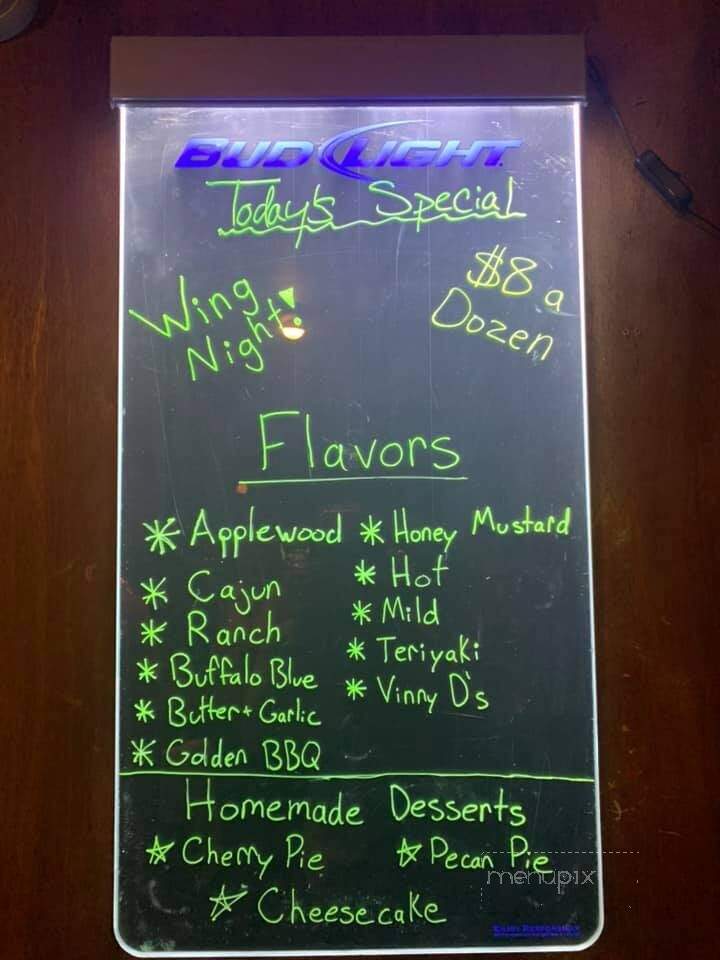 BUD LIGHT
Today's Special
Wing
Night!
$8 a
Dozen
Flavors
* Applewood
* Cajun
* Ranch
* Buffalo Blue
* Butter + Garlic
* Golden BBQ
* Honey Mustard
* Hot
* Mild
* Teriyaki
* Vinny D's
Homemade Desserts
☆ Cherry Pie
☆ Pecan Pie
☆ Cheesecake
menupix
ENJOY RESPONSIBLY